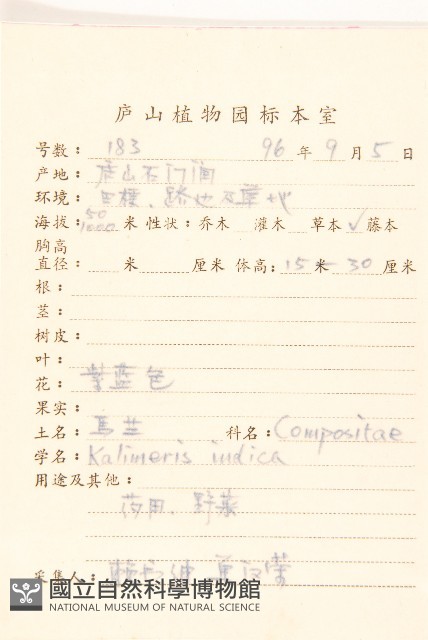 庐山植物园标本室
号数: 183 96 年 9 月 5 日
产地: 庐山石门涧
环境: 田埂、路地及草地
海拔: 50 1000 米 性状: 乔木 灌木 草本 ✓ 藤本
胸高
直径: 米 厘米 体高: 15 米 30 厘米
根:
茎:
树皮:
叶:
花: 紫蓝色
果实:
土名: 马兰 科名: Compositae
学名: Kalimeris indica
用途及其他:
药用、野菜
采集人:
國立自然科學博物館
NATIONAL MUSEUM OF NATURAL SCIENCE